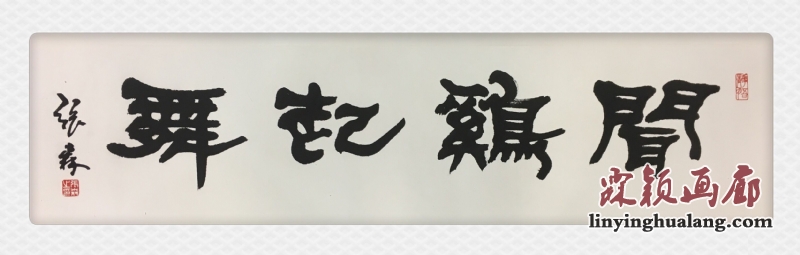 聞鷄起舞
张森
霖颖画廊
linyinghualang.com